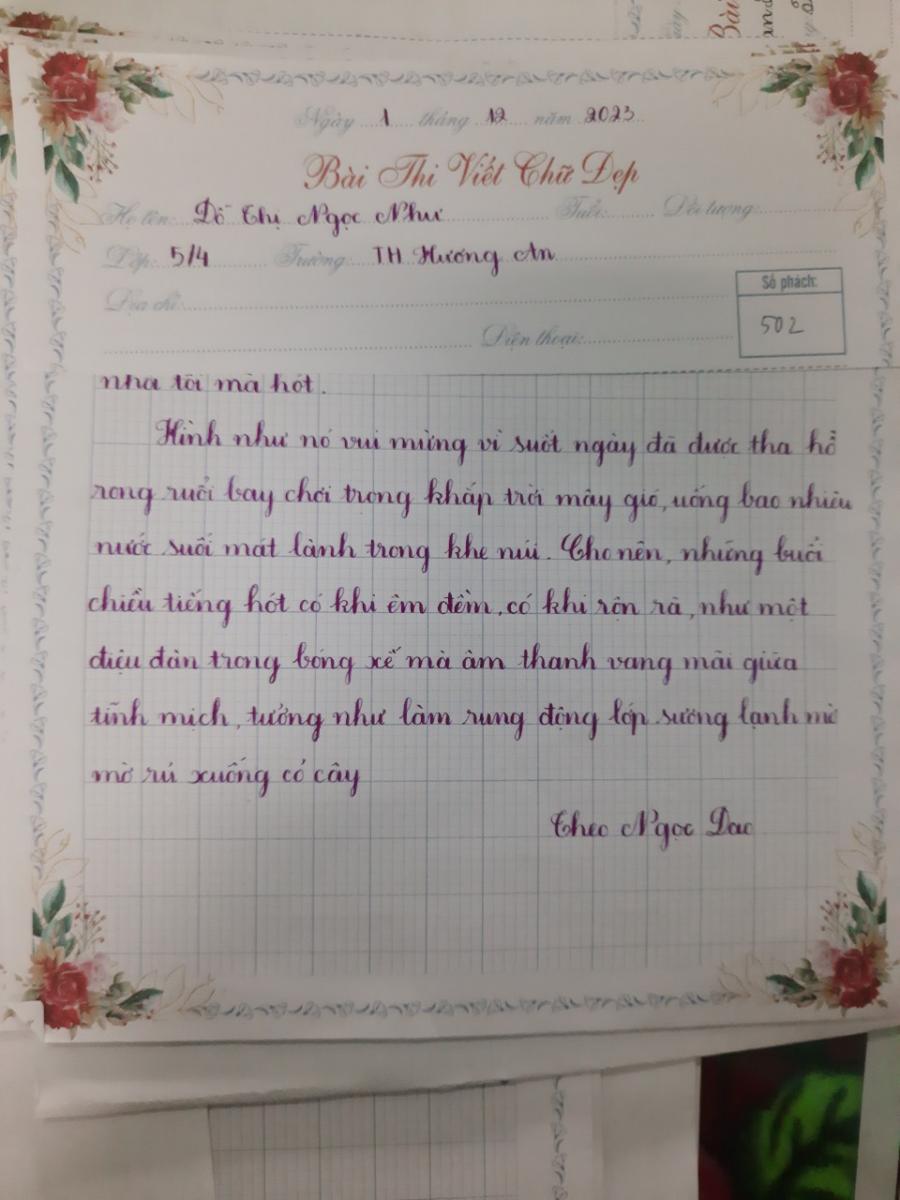 Ngày 1 tháng 12 năm 2023
Bài Thi Viết Chữ Đẹp
Họ tên: Đỗ Thị Ngọc Như Tuổi: Đối tượng:
Lớp: 5/4 Trường: TH Hương An
Địa chỉ:
Số phách:
502
Điện thoại:
nhà tôi mà hót.
Hình như nó vui mừng vì suốt ngày đã được tha hồ
rong ruổi bay chơi trong khắp trời mây gió, uống bao nhiêu
nước suối mát lành trong khe núi. Cho nên, những buổi
chiều tiếng hót có khi êm đềm, có khi rộn rã, như một
điệu đàn trong bóng xế mà âm thanh vang mãi giữa
tĩnh mịch, tưởng như làm rung động lớp sương lạnh mờ
mờ rủ xuống cỏ cây
Theo Ngọc Dao